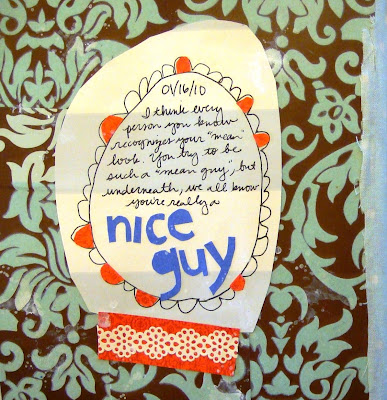 01/16/10
I think every
person you know
recognizes your "mean"
look. You try to be
such a "mean guy", but
underneath, we all know
you're really a
nice
guy